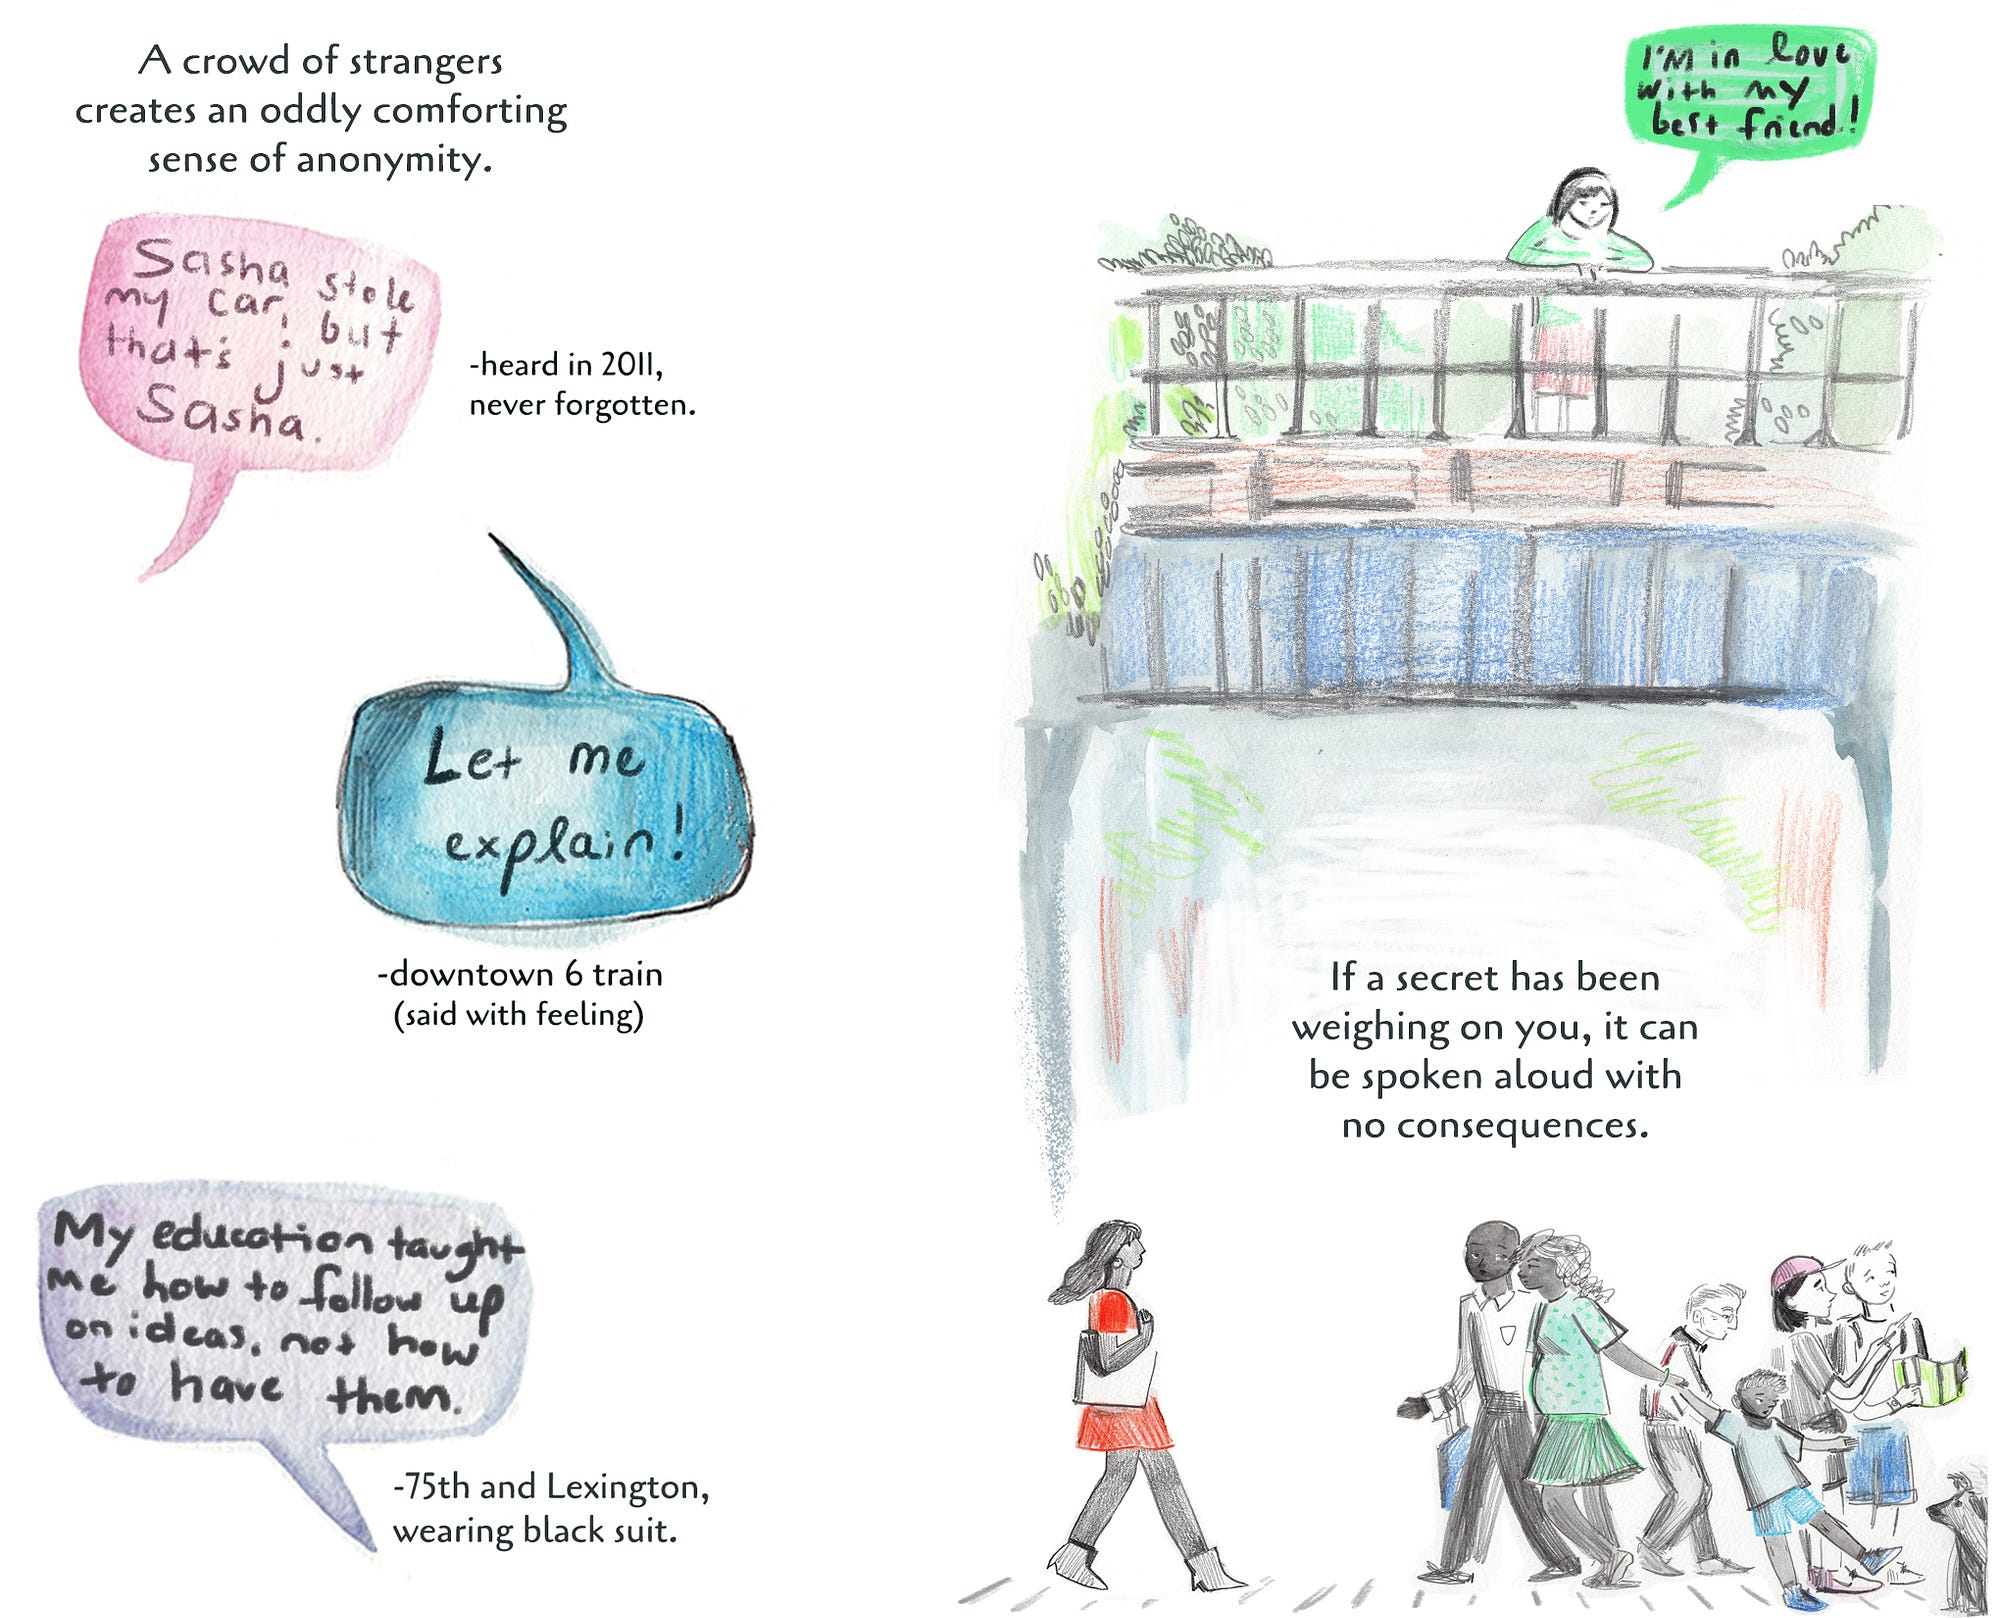 A crowd of strangers
creates an oddly comforting
sense of anonymity.
Sasha stole
my car, but
that's just
Sasha.
-heard in 2011,
never forgotten.
Let me
explain!
-downtown 6 train
(said with feeling)
My education taught
me how to follow up
on ideas, not how
to have them.
-75th and Lexington,
wearing black suit.
I'M in love
with my
best friend!
If a secret has been
weighing on you, it can
be spoken aloud with
no consequences.